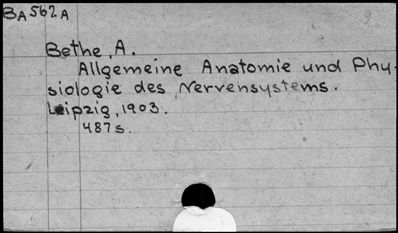 BA562A
Bethe, A.
Allgemeine Anatomie und Phy-
siologie des Nervensystems.
Leipzig, 1903.
487 s.